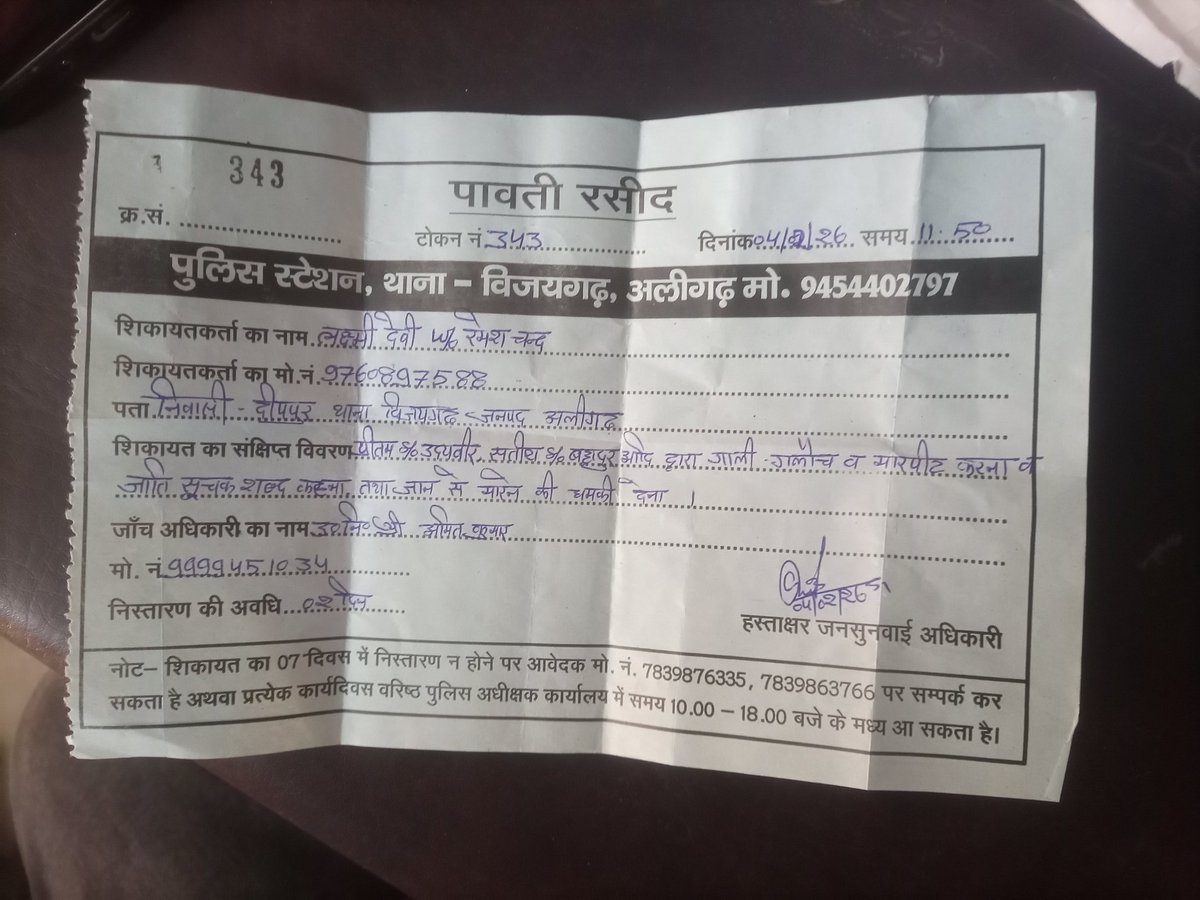 343
पावती रसीद
क्र.सं. ........ टोकन नं. 343 दिनांक 04/2/26 समय 11:50
पुलिस स्टेशन, थाना – विजयगढ़, अलीगढ़ मो. 9454402797
शिकायतकर्ता का नाम लक्ष्मी देवी w/o रमेश चन्द
शिकायतकर्ता का मो.नं. 9760897588
पता निवासी - दीपपुर थाना विजयगढ़ जनपद अलीगढ़
शिकायत का संक्षिप्त विवरण प्रीतम s/o उदयवीर, सतीश s/o आदि द्वारा गाली गलौच व मारपीट करना व
जाति सूचक शब्द कहना तथा जान से मारने की धमकी देना ।
जाँच अधिकारी का नाम उ0नि0 श्री अमित कुमार
मो. नं. 9999451034
निस्तारण की अवधि
04/02/26
हस्ताक्षर जनसुनवाई अधिकारी
नोट– शिकायत का 07 दिवस में निस्तारण न होने पर आवेदक मो. नं. 7839876335, 7839863766 पर सम्पर्क कर
सकता है अथवा प्रत्येक कार्यदिवस वरिष्ठ पुलिस अधीक्षक कार्यालय में समय 10.00 – 18.00 बजे के मध्य आ सकता है।